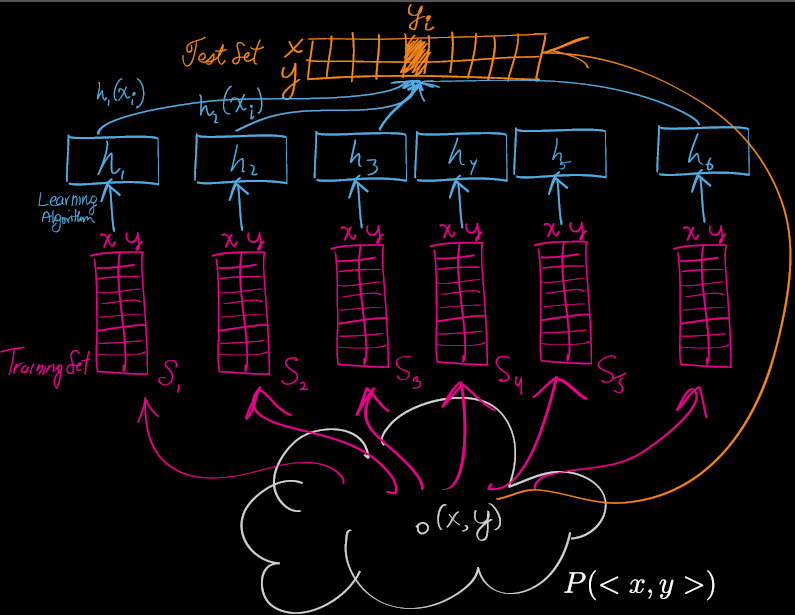 y_i
Test Set x
y
h_1(x_i)
h_2(x_i)
h_1 h_2 h_3 h_4 h_5 h_6
Learning
Algorithm
x y x y x y x y x y x y
Training Set S_1 S_2 S_3 S_4 S_5
(x, y)
P(< x, y >)